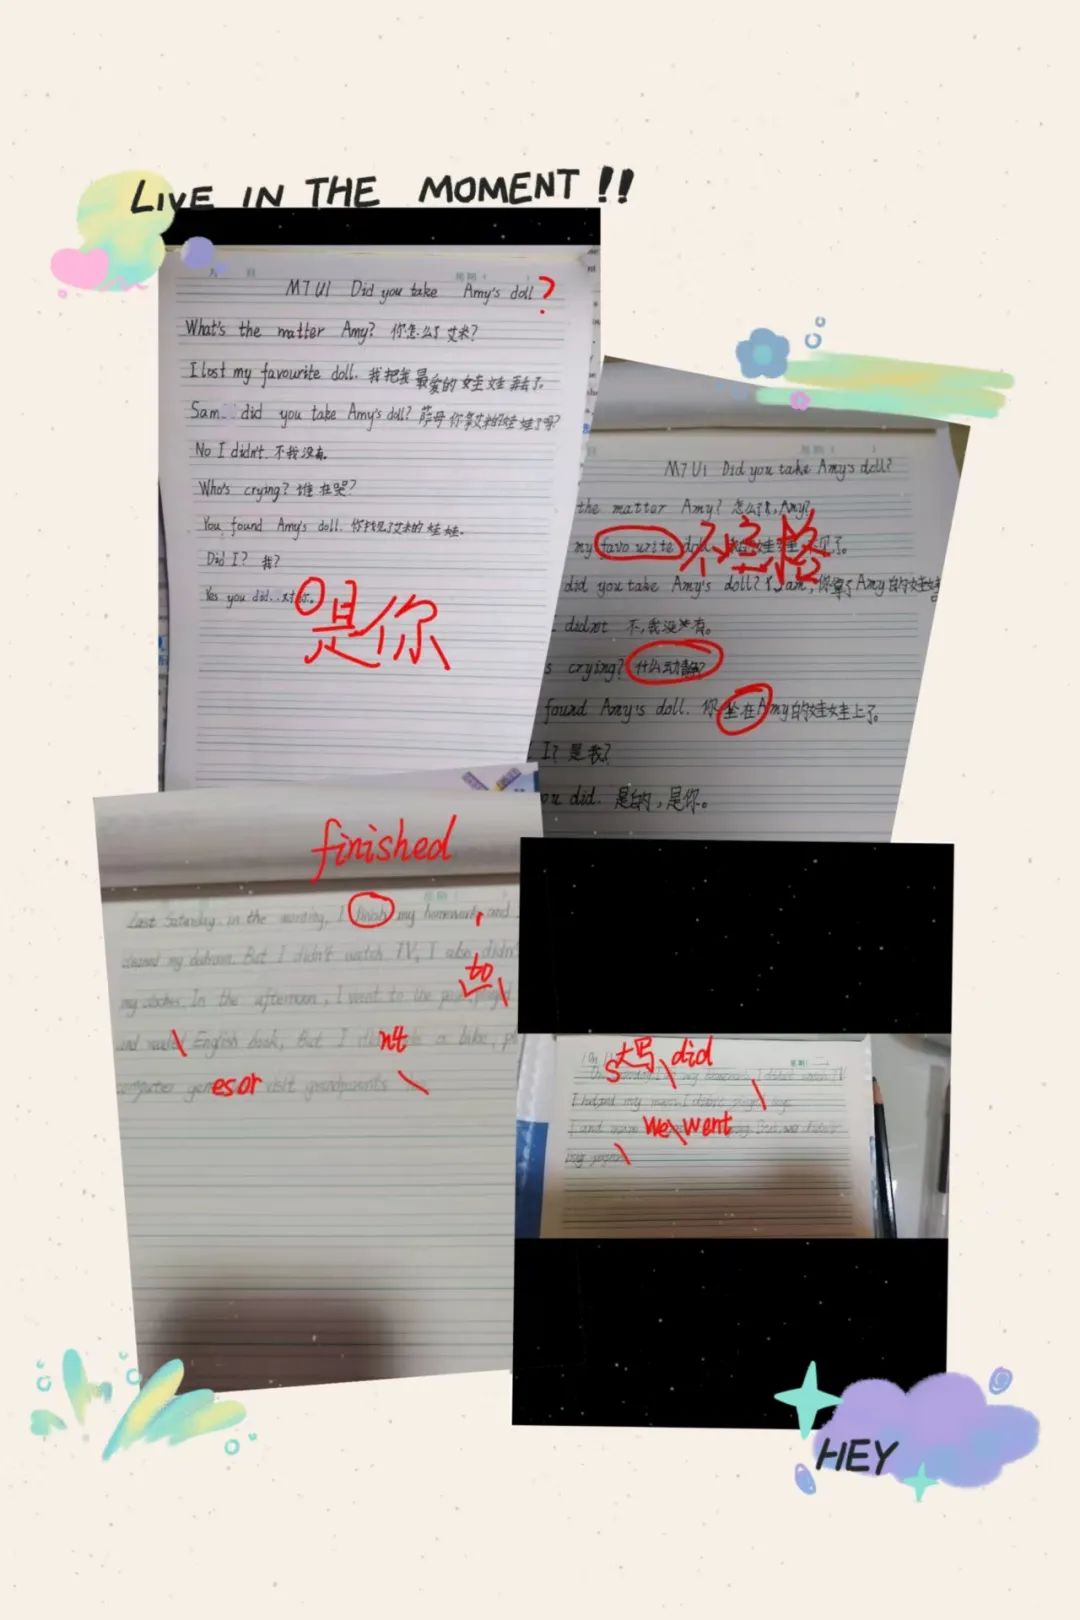 LIVE IN THE MOMENT!!
月 日 星期( )
M7 U1 Did you take Amy's doll?
What's the matter Amy? 你怎么了艾米?
I lost my favourite doll. 我把我最爱的娃娃弄丢了。
Sam did you take Amy's doll? 萨母你拿艾米的娃娃了吗?
No I didn't. 不我没有。
Who's crying? 谁在哭?
You found Amy's doll. 你找见了艾米的娃娃。
Did I? 我?
Yes you did. 对
是你
M7 U1 Did you take Amy's doll?
the matter Amy? 怎么了, Amy?
my favourite 不空格 见了。
did you take Amy's doll? am, 你拿了Amy的娃娃
didn't 不,我没有。
s crying? 什么动静?
found Amy's doll. 你坐在Amy的娃娃上了。
I? 是我?
ou did. 是的,是你。
finished
星期
Last Saturday in the morning, I finish my homework, and
my bedroom. But I didn't watch TV, I also didn't
to
my clothes. In the afternoon, I went to the played
and English book, But I n't a bike,
computer esor visit grandparents
星期
S大写 did
my I didn't watch TV
I helped my mum. I didn't
I and mum we went But we didn't
HEY